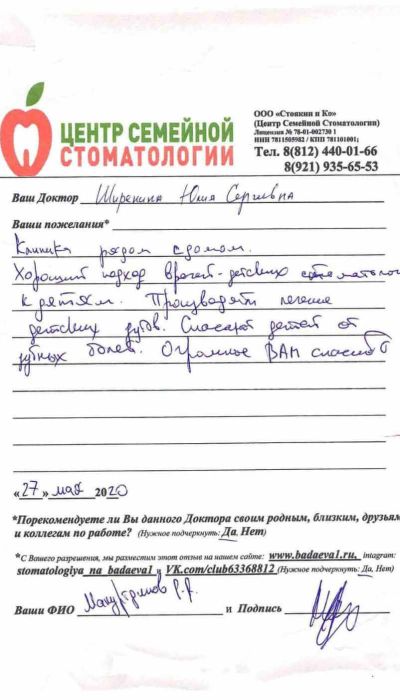 ЦЕНТР СЕМЕЙНОЙ
СТОМАТОЛОГИИ
ООО «Стоякин и Ко»
(Центр Семейной Стоматологии)
Лицензия № 78-01-002730 1
ИНН 7811505982 / КПП 781101001;
Тел. 8(812) 440-01-66
8(921) 935-65-53
Ваш Доктор Ширенина Юлия Сергеевна
Ваши пожелания*
Клиника рядом с домом.
Хороший подход врачей-детских стоматолог
к детям. Производят лечение
детских зубов. Спасают детей от
зубных болей. Огромное ВАМ спасибо
«27» мая 2020
*Порекомендуете ли Вы данного Доктора своим родным, близким, друзьям
и коллегам по работе? (Нужное подчеркнуть: Да, Нет)
*С Вашего разрешения, мы разместим этот отзыв на нашем сайте: www.badaeva1.ru, intagram:
stomatologiya_na_badaeva1 и VK.com/club63368812 (Нужное подчеркнуть: Да, Нет)
Ваши ФИО и Подпись